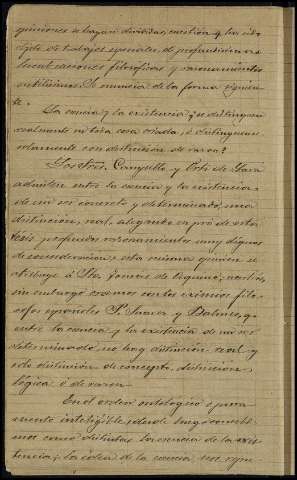 opiniones se hayan divididas, cuestión q. ha sido
objeto de trabajos especiales, de profundísimas
elucubraciones filosóficas y razonamientos
sutilísimos. Se enuncia de la forma siguien-
te.
La esencia y la existencia ¿se distinguen
realmente en toda cosa creada, ó distinguense
solamente con distinción de razon?
Los Stres. Campillo y Orti de Lara
admiten entre la esencia y la existencia
de un ser concreto y determinado, una
distinción, real, alegando en pró de esta
tesis profundos razonamientos muy dignos
de consideración; esta misma opinión se
atribuye á Sto. Tomás de Aquino, nosotros,
sin embargo creemos con los eximios filó-
sofos españoles P. Suarez y Balmes, q.
entre la esencia y la existencia de un ser
determinado, no hay distinción real y
solo distinción de concepto, distinción
lógica ó de razon.
En el orden ontológico ó pura
mente inteligible, desde luego concebi-
mos como distintas la esencia de la exis-
tencia; la idea de la esencia nos repre